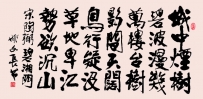 城中煙樹
碧波漫幾
萬樓台樹
影間天闊
鳥行疑沒
草地卑江
勢欲沉山
宋陶弼碧湘門